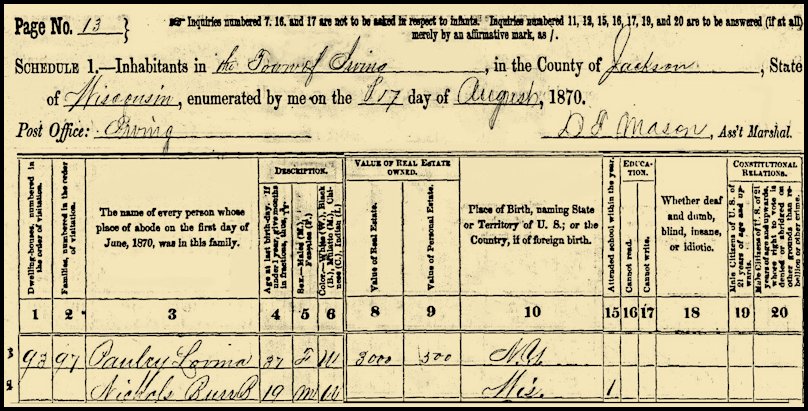 Page No. 13 }
☞ Inquiries numbered 7, 16, and 17 are not to be asked in respect to infants. Inquiries numbered 11, 12, 15, 16, 17, 19, and 20 are to be answered (if at all)
merely by an affirmative mark, as /.
SCHEDULE 1.—Inhabitants in the Town of Irving, in the County of Jackson, State
of Wisconsin, enumerated by me on the 17 day of August, 1870.
Post Office: Irving
D Mason, Ass't Marshal.
Dwelling-houses, numbered in the order of visitation.
Families, numbered in the order of visitation.
The name of every person whose place of abode on the first day of June, 1870, was in this family.
DESCRIPTION.
Age at last birth-day. If under 1 year, give months in fractions, thus,
Sex.—Males (M.), Females (F.)
Color.—White (W.), Black (B.), Mulatto (M.), Chinese (C.), Indian (I.)
VALUE OF REAL ESTATE OWNED.
Value of Real Estate.
Value of Personal Estate.
Place of Birth, naming State or Territory of U. S.; or the Country, if of foreign birth.
Attended school within the year.
EDUCATION.
Cannot read.
Cannot write.
Whether deaf and dumb, blind, insane, or idiotic.
CONSTITUTIONAL RELATIONS.
Male Citizens of U. S. of 21 years of age and upwards.
Male Citizens of U. S. of 21 years of age and upwards, whose right to vote is denied or abridged on other grounds than rebellion or other crime.
1 2 3 4 5 6 8 9 10 15 16 17 18 19 20
3 93 97 Pauley Lovina 37 F W 3000 500 N.Y.
4 Nichols Burr B 19 M W Wis. 1